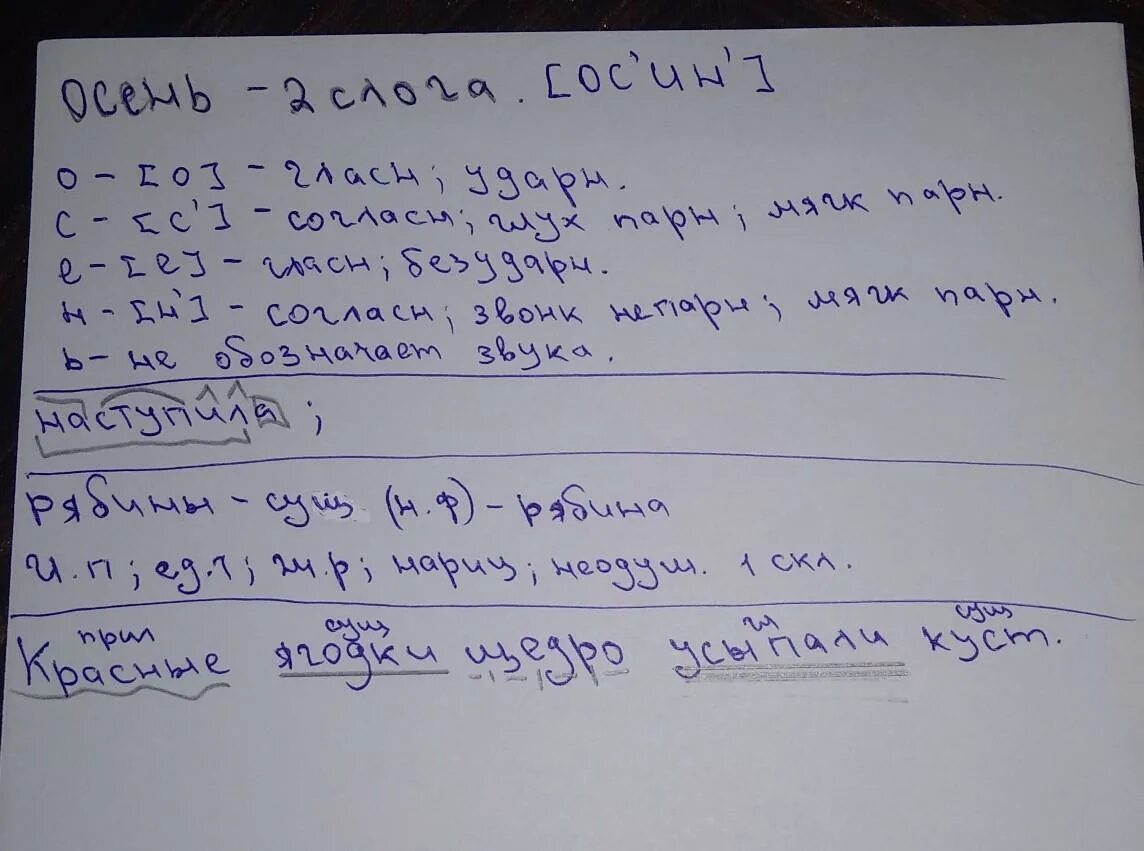 осень - 2 слога. [ос'ин']
о - [о] - гласн; ударн.
с - [с'] - согласн; глух парн; мягк парн.
е - [е] - гласн; безударн.
н - [н'] - согласн; звонк непарн; мягк парн.
ь - не обозначает звука.
наступила ;
рябины - сущ (н.ф) - рябина
И.п; ед.ч; ж.р; нариц; неодуш. 1 скл.
прил сущ гл сущ
Красные ягодки щедро усыпали куст.